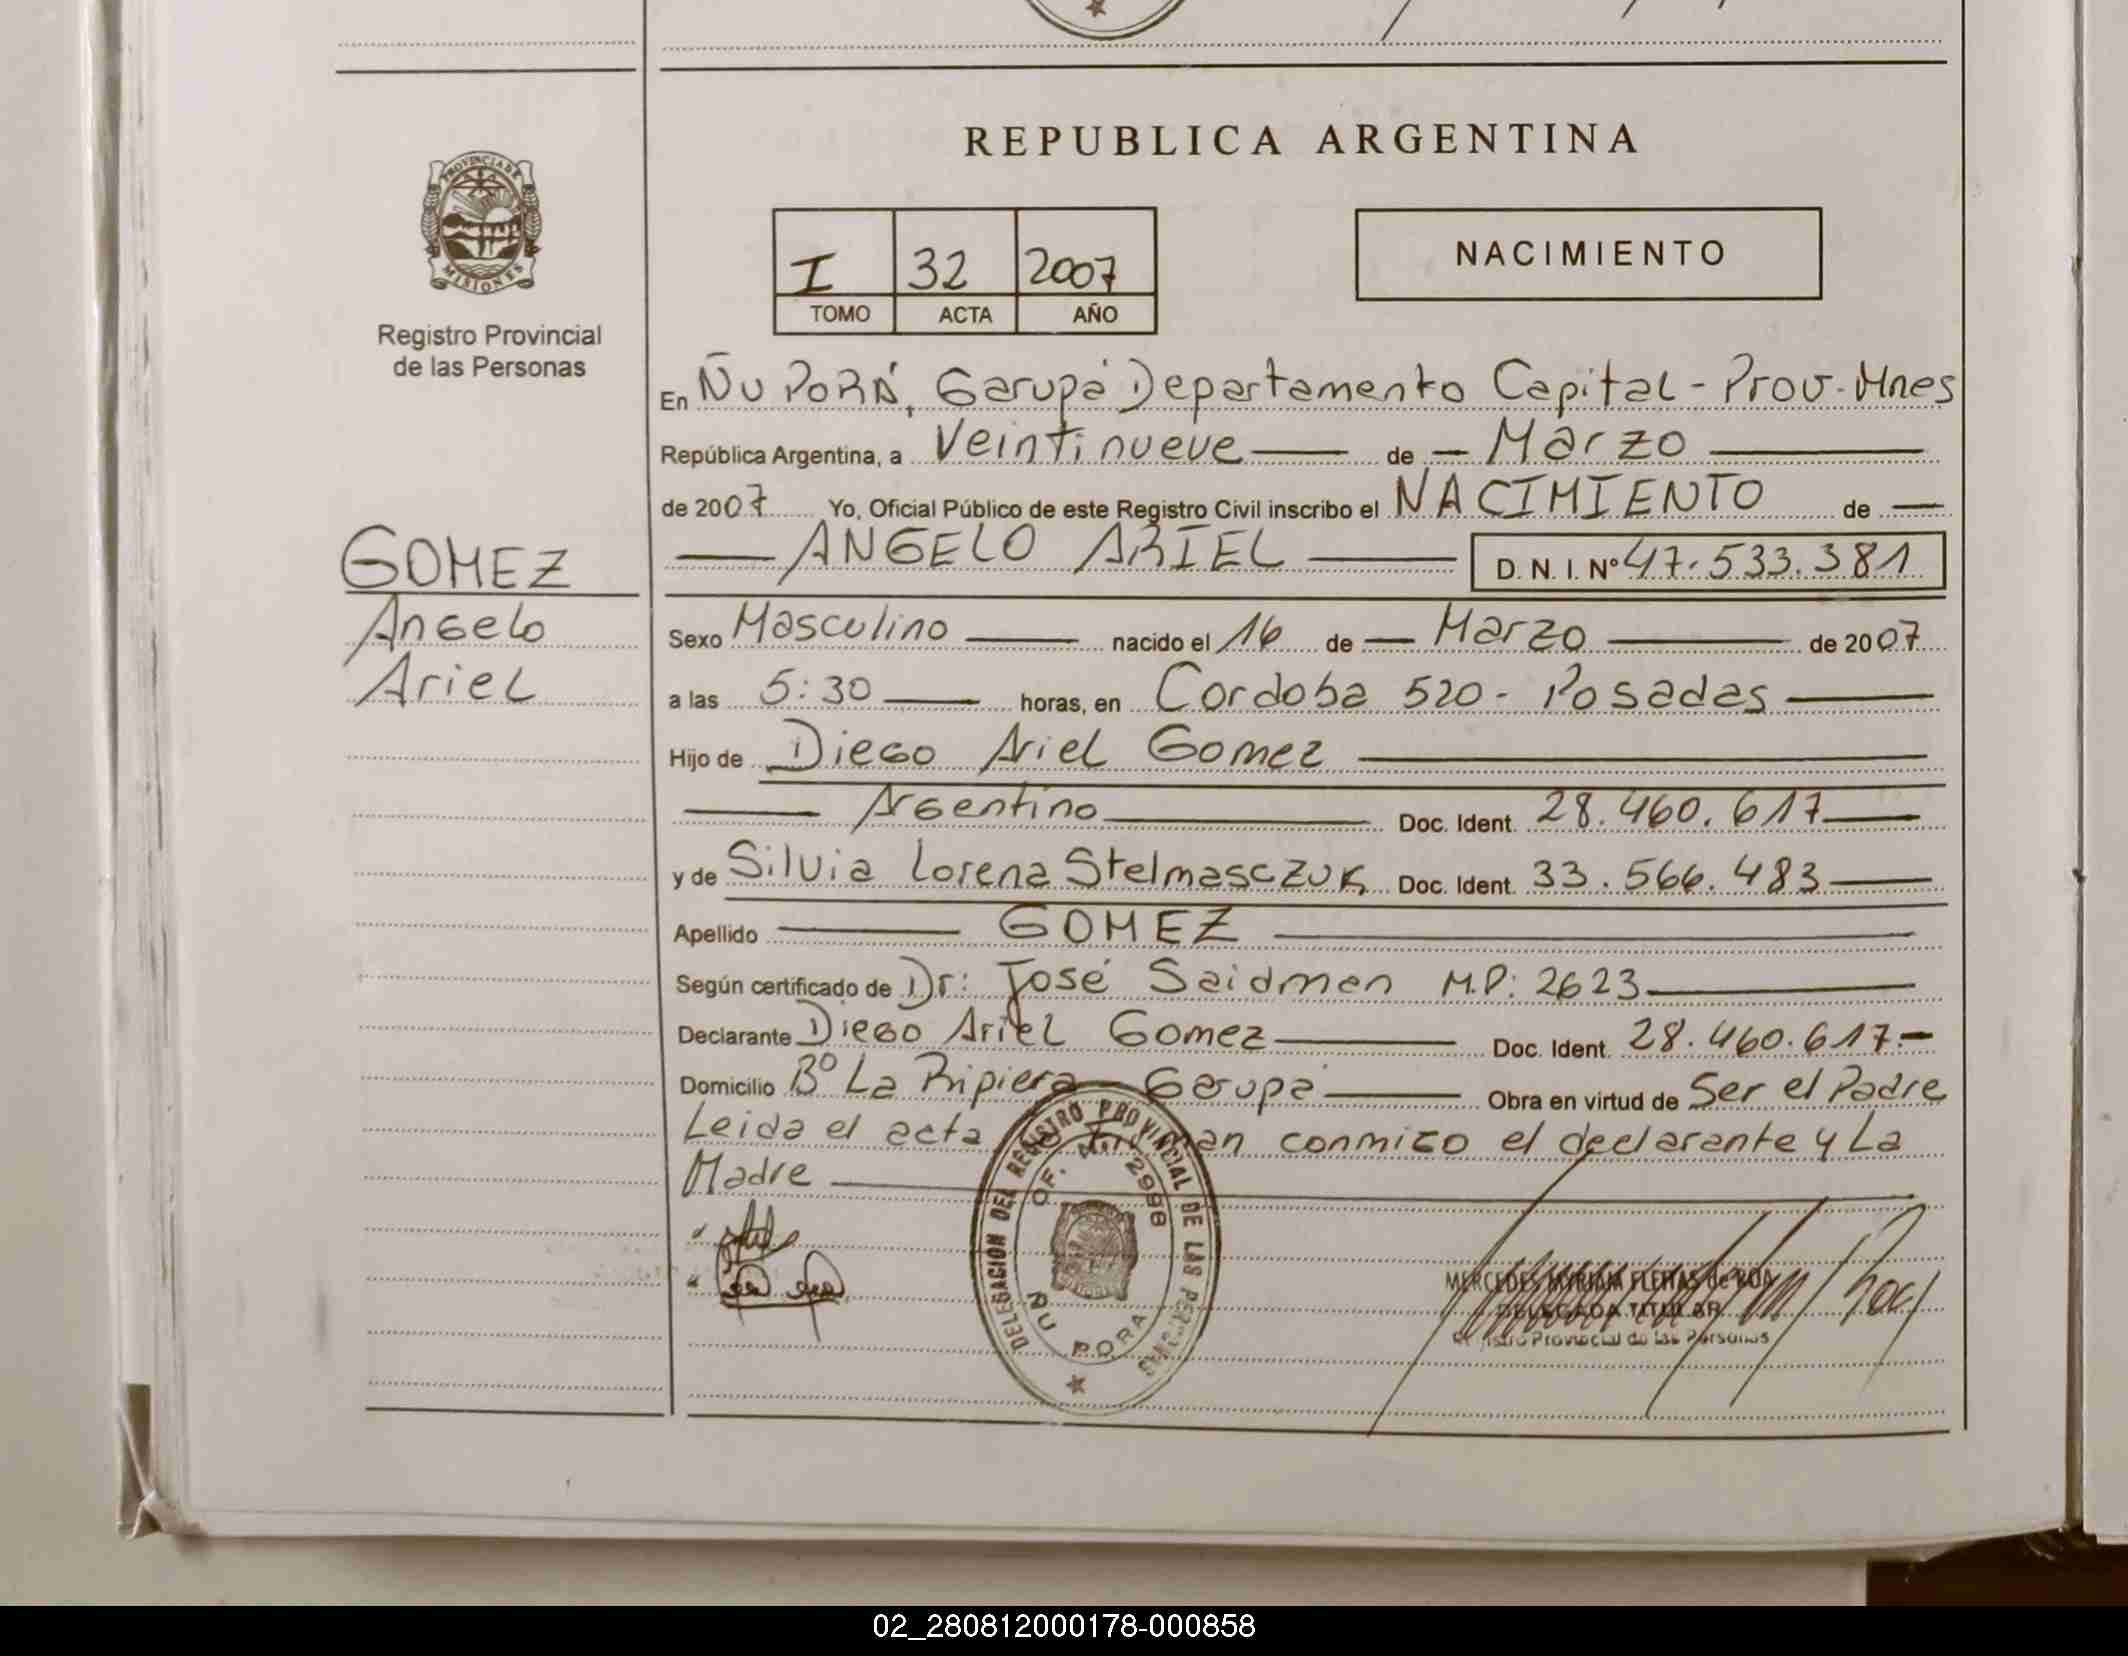 REPUBLICA ARGENTINA
PROVINCIA DE
MISIONES
Registro Provincial
de las Personas
I 32 2007
TOMO ACTA AÑO
NACIMIENTO
En ÑU PORÁ, Garupá Departamento Capital - Prov. Mnes
República Argentina, a Veintinueve de Marzo
de 2007 Yo, Oficial Público de este Registro Civil inscribo el NACIMIENTO de
ANGELO ARIEL D. N. I. Nº 47.533.381
GOMEZ
Angelo
Ariel
Sexo Masculino nacido el 16 de Marzo de 2007
a las 5:30 horas, en Cordoba 520 - Posadas
Hijo de Diego Ariel Gomez
Argentino Doc. Ident. 28.460.617
y de Silvia Lorena Stelmasczuk Doc. Ident. 33.566.483
Apellido GOMEZ
Según certificado de Dr: José Saidman M.P: 2623
Declarante Diego Ariel Gomez Doc. Ident. 28.460.617.-
Domicilio Bº La Ripiera Garupá Obra en virtud de Ser el Padre
Leida el acta firman conmigo el declarante y La
Madre
DELEGACION DEL REGISTRO PROVINCIAL DE LAS PERSONAS
OF. 2998
ÑU PORA
MERCEDES MIRIAM FLEITAS de ROA
DELEGADA TITULAR
Registro Provincial de las Personas
02_280812000178-000858